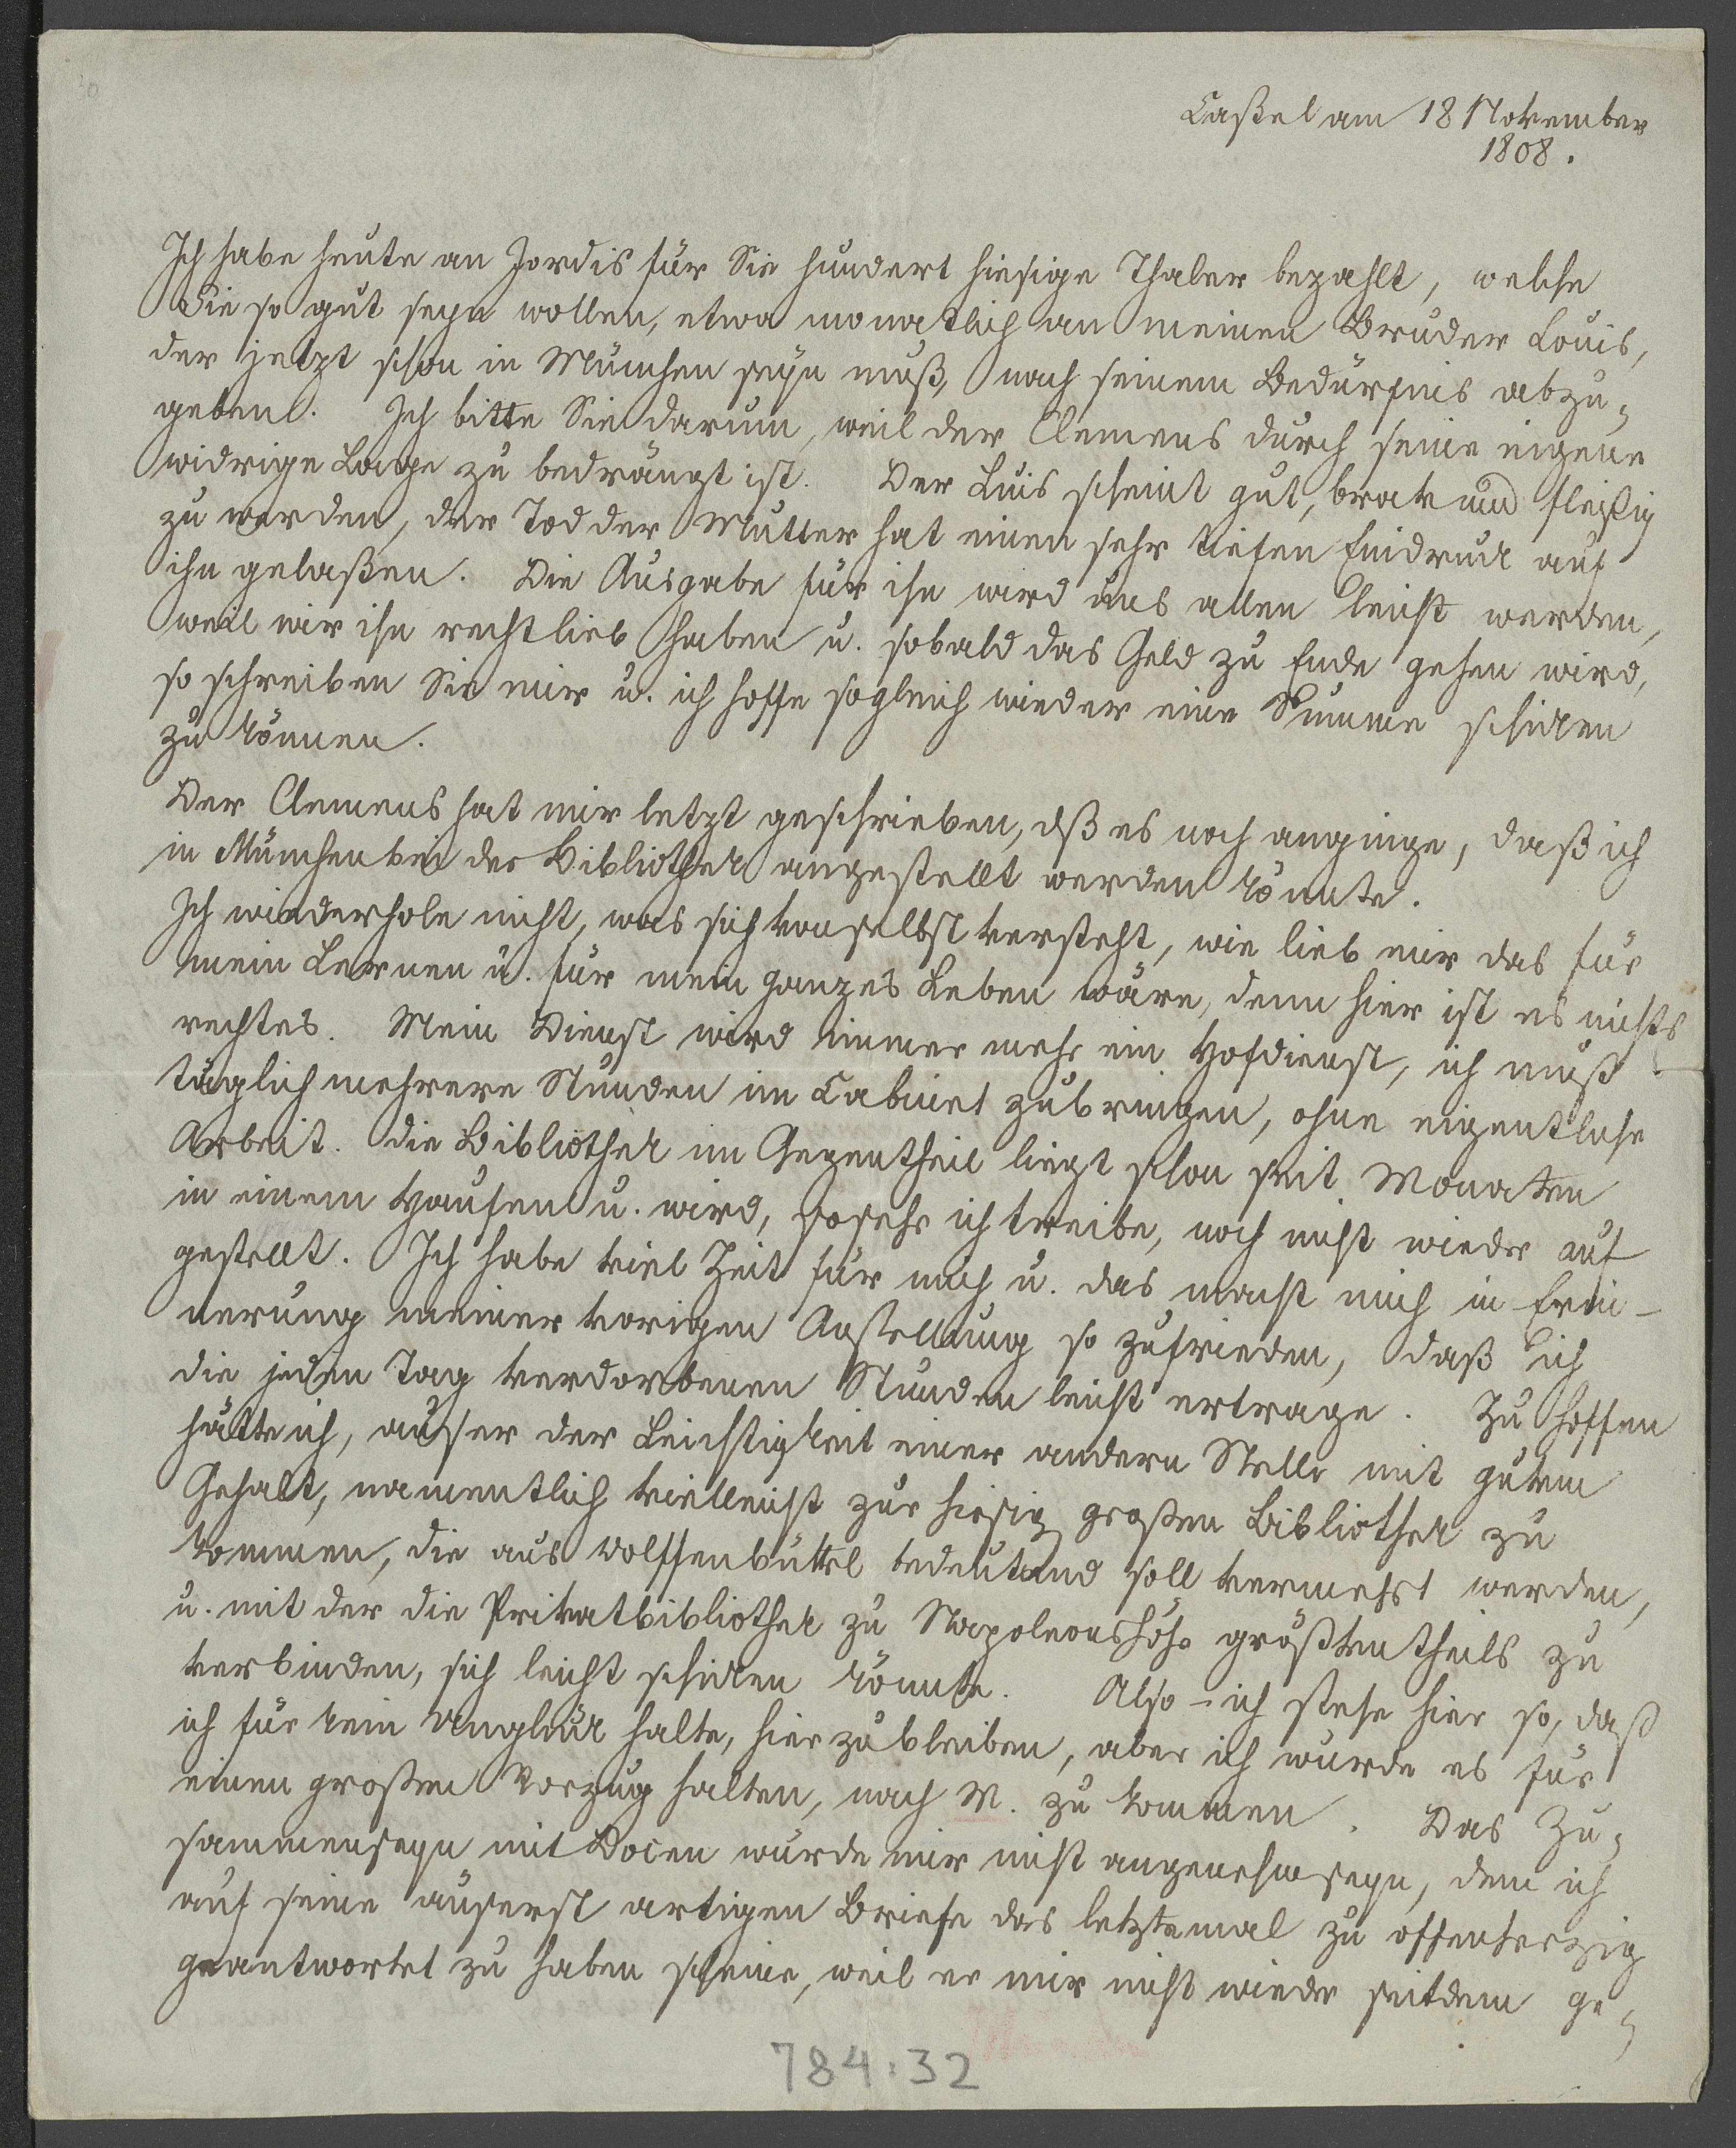 40
Caßel am 18 November
1808.
Ich habe heute an Jordis für Sie hundert hiesige Thaler bezahlt, welche
Sie so gut seyn wollen, etwa monatlich an meinen Bruder Louis,
der jetzt schon in München seyn muß, nach seinem Bedürfnis abzu-
geben. Ich bitte Sie darum, weil der Clemens durch seine eigene
widrige Lage zu bedrängt ist. Der Luis scheint gut, brav und fleißig
zu werden, der Tod der Mutter hat einen sehr tiefen Eindruck auf
ihn gelaßen. Die Ausgabe für ihn wird uns allen leicht werden,
weil wir ihn recht lieb haben u. sobald das Geld zu Ende gehen wird,
so schreiben Sie mir u. ich hoffe sogleich wieder eine Summe schicken
zu können.
Der Clemens hat mir letzt geschrieben, dß es noch anginge, daß ich
in München bei der Bibliothek angestellt werden könnte.
Ich wiederhole nicht, was sich von selbst versteht, wie lieb mir das für
mein Lernen u. für mein ganzes Leben wäre, denn hier ist es nichts
rechtes. Mein Dienst wird immer mehr ein Hofdienst, ich muß
täglich mehrere Stunden im Cabinet zubringen, ohne eigentliche
Arbeit. Die Bibliothek im Gegentheil liegt schon seit Monaten
in einem Haufen u. wird, sosehr ich treibe, noch nicht wieder auf
gestellt. Ich habe viel Zeit für mich u. das macht mich in Erin-
nerung meiner vorigen Anstellung so zufrieden, daß ich
die jeden Tag verdorbenen Stunden leicht ertrage. Zu hoffen
hätte ich, auser der Leichtigkeit einer andern Stelle mit gutem
Gehalt, namentlich vielleicht zur hiesig großen Bibliothek zu
kommen, die aus Wolffenbüttel bedeutend soll vermehrt werden,
u. mit der die Privatbibliothek zu Napoleonshöh größtentheils zu
verbinden, sich leicht schicken könnte. Also - ich stehe hier so, daß
ich für kein Unglück halte, hier zu bleiben, aber ich würde es für
einen großen Vorzug halten, nach M. zu kommen. Das Zu-
sammenseyn mit Docen würde mir nicht angenehm seyn, dem ich
auf seine äuserst artigen Briefe das letztemal zu offenherzig
geantwortet zu haben scheine, weil er mir nicht wieder seitdem ge-
784:32